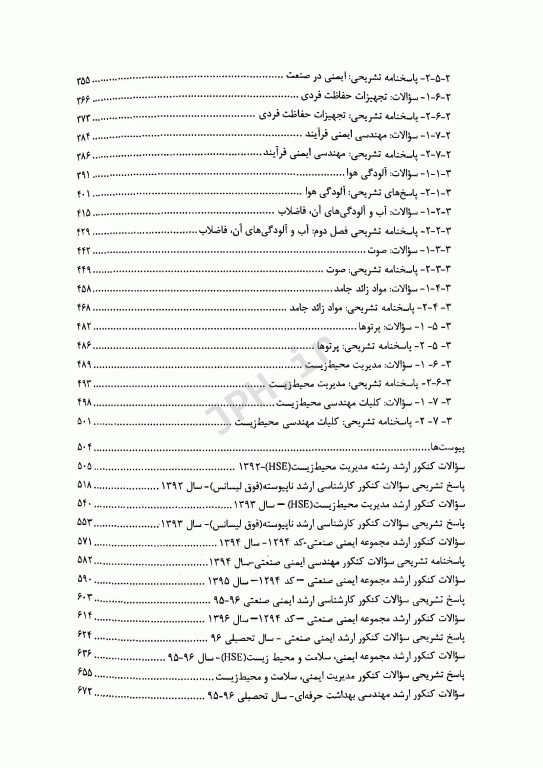 ۲-۵-۲- پاسخنامه تشریحی: ایمنی در صنعت ........ ۳۵۵
۱-۶-۲- سؤالات: تجهیزات حفاظت فردی ........ ۳۶۶
۲-۶-۲- پاسخنامه تشریحی: تجهیزات حفاظت فردی ........ ۳۷۳
۱-۷-۲- سؤالات: مهندسی ایمنی فرآیند ........ ۳۸۴
۲-۷-۲- پاسخنامه تشریحی: مهندسی ایمنی فرآیند ........ ۳۸۶
۱-۱-۳- سؤالات: آلودگی هوا ........ ۳۹۱
۲-۱-۳- پاسخ‌های تشریحی: آلودگی هوا ........ ۴۰۱
۱-۲-۳- سؤالات: آب و آلودگی‌های آن، فاضلاب ........ ۴۱۵
۲-۲-۳- پاسخنامه تشریحی فصل دوم: آب و آلودگی‌های آن، فاضلاب ........ ۴۲۹
۱-۳-۳- سؤالات: صوت ........ ۴۴۲
۲-۳-۳- پاسخنامه تشریحی: صوت ........ ۴۴۹
۱-۴-۳- سؤالات: مواد زائد جامد ........ ۴۵۸
۳- ۴-۲- پاسخنامه تشریحی: مواد زائد جامد ........ ۴۶۸
۳- ۵- ۱- سؤالات: پرتوها ........ ۴۸۲
۳- ۵- ۲- پاسخنامه تشریحی: پرتوها ........ ۴۸۶
۳- ۶- ۱- سؤالات: مدیریت محیط‌زیست ........ ۴۸۹
۲-۶-۳- پاسخنامه تشریحی: مدیریت محیط‌زیست ........ ۴۹۳
۳- ۷- ۱- سؤالات: کلیات مهندسی محیط‌زیست ........ ۴۹۸
۳- ۷- ۲- پاسخنامه تشریحی: کلیات مهندسی محیط‌زیست ........ ۵۰۱
پیوست‌ها ........ ۵۰۴
سؤالات کنکور ارشد رشته مدیریت محیط‌زیست(HSE)-۱۳۹۲ ........ ۵۰۵
پاسخ تشریحی سؤالات کنکور کارشناسی ارشد ناپیوسته(فوق لیسانس)- سال ۱۳۹۲ ........ ۵۱۸
سؤالات کنکور ارشد مدیریت محیط‌زیست(HSE) – سال ۱۳۹۳ ........ ۵۴۰
پاسخ تشریحی سؤالات کنکور کارشناسی ارشد ناپیوسته(فوق لیسانس)- سال ۱۳۹۳ ........ ۵۵۳
سؤالات کنکور ارشد مجموعه ایمنی صنعتی-کد ۱۲۹۴- سال ۱۳۹۴ ........ ۵۷۱
پاسخنامه تشریحی سؤالات کنکور مهندسی ایمنی صنعتی-سال ۱۳۹۴ ........ ۵۸۲
سؤالات کنکور ارشد مجموعه ایمنی صنعتی – کد ۱۲۹۴– سال ۱۳۹۵ ........ ۵۹۰
پاسخ تشریحی سؤالات کنکور کارشناسی ارشد ایمنی صنعتی ۹۶-۹۵ ........ ۶۰۳
سؤالات کنکور ارشد مجموعه ایمنی صنعتی – کد ۱۲۹۴– سال ۱۳۹۶ ........ ۶۱۴
پاسخ تشریحی سؤالات کنکور ارشد ایمنی صنعتی - سال تحصیلی ۹۶ ........ ۶۲۴
سؤالات کنکور ارشد مجموعه ایمنی، سلامت و محیط زیست(HSE)- سال ۹۶-۹۵ ........ ۶۳۶
پاسخ تشریحی سؤالات کنکور مدیریت ایمنی، سلامت و محیط‌زیست ........ ۶۵۵
سؤالات کنکور ارشد مهندسی بهداشت حرفه‌ای- سال تحصیلی ۹۶-۹۵ ........ ۶۷۲
JPH.ir